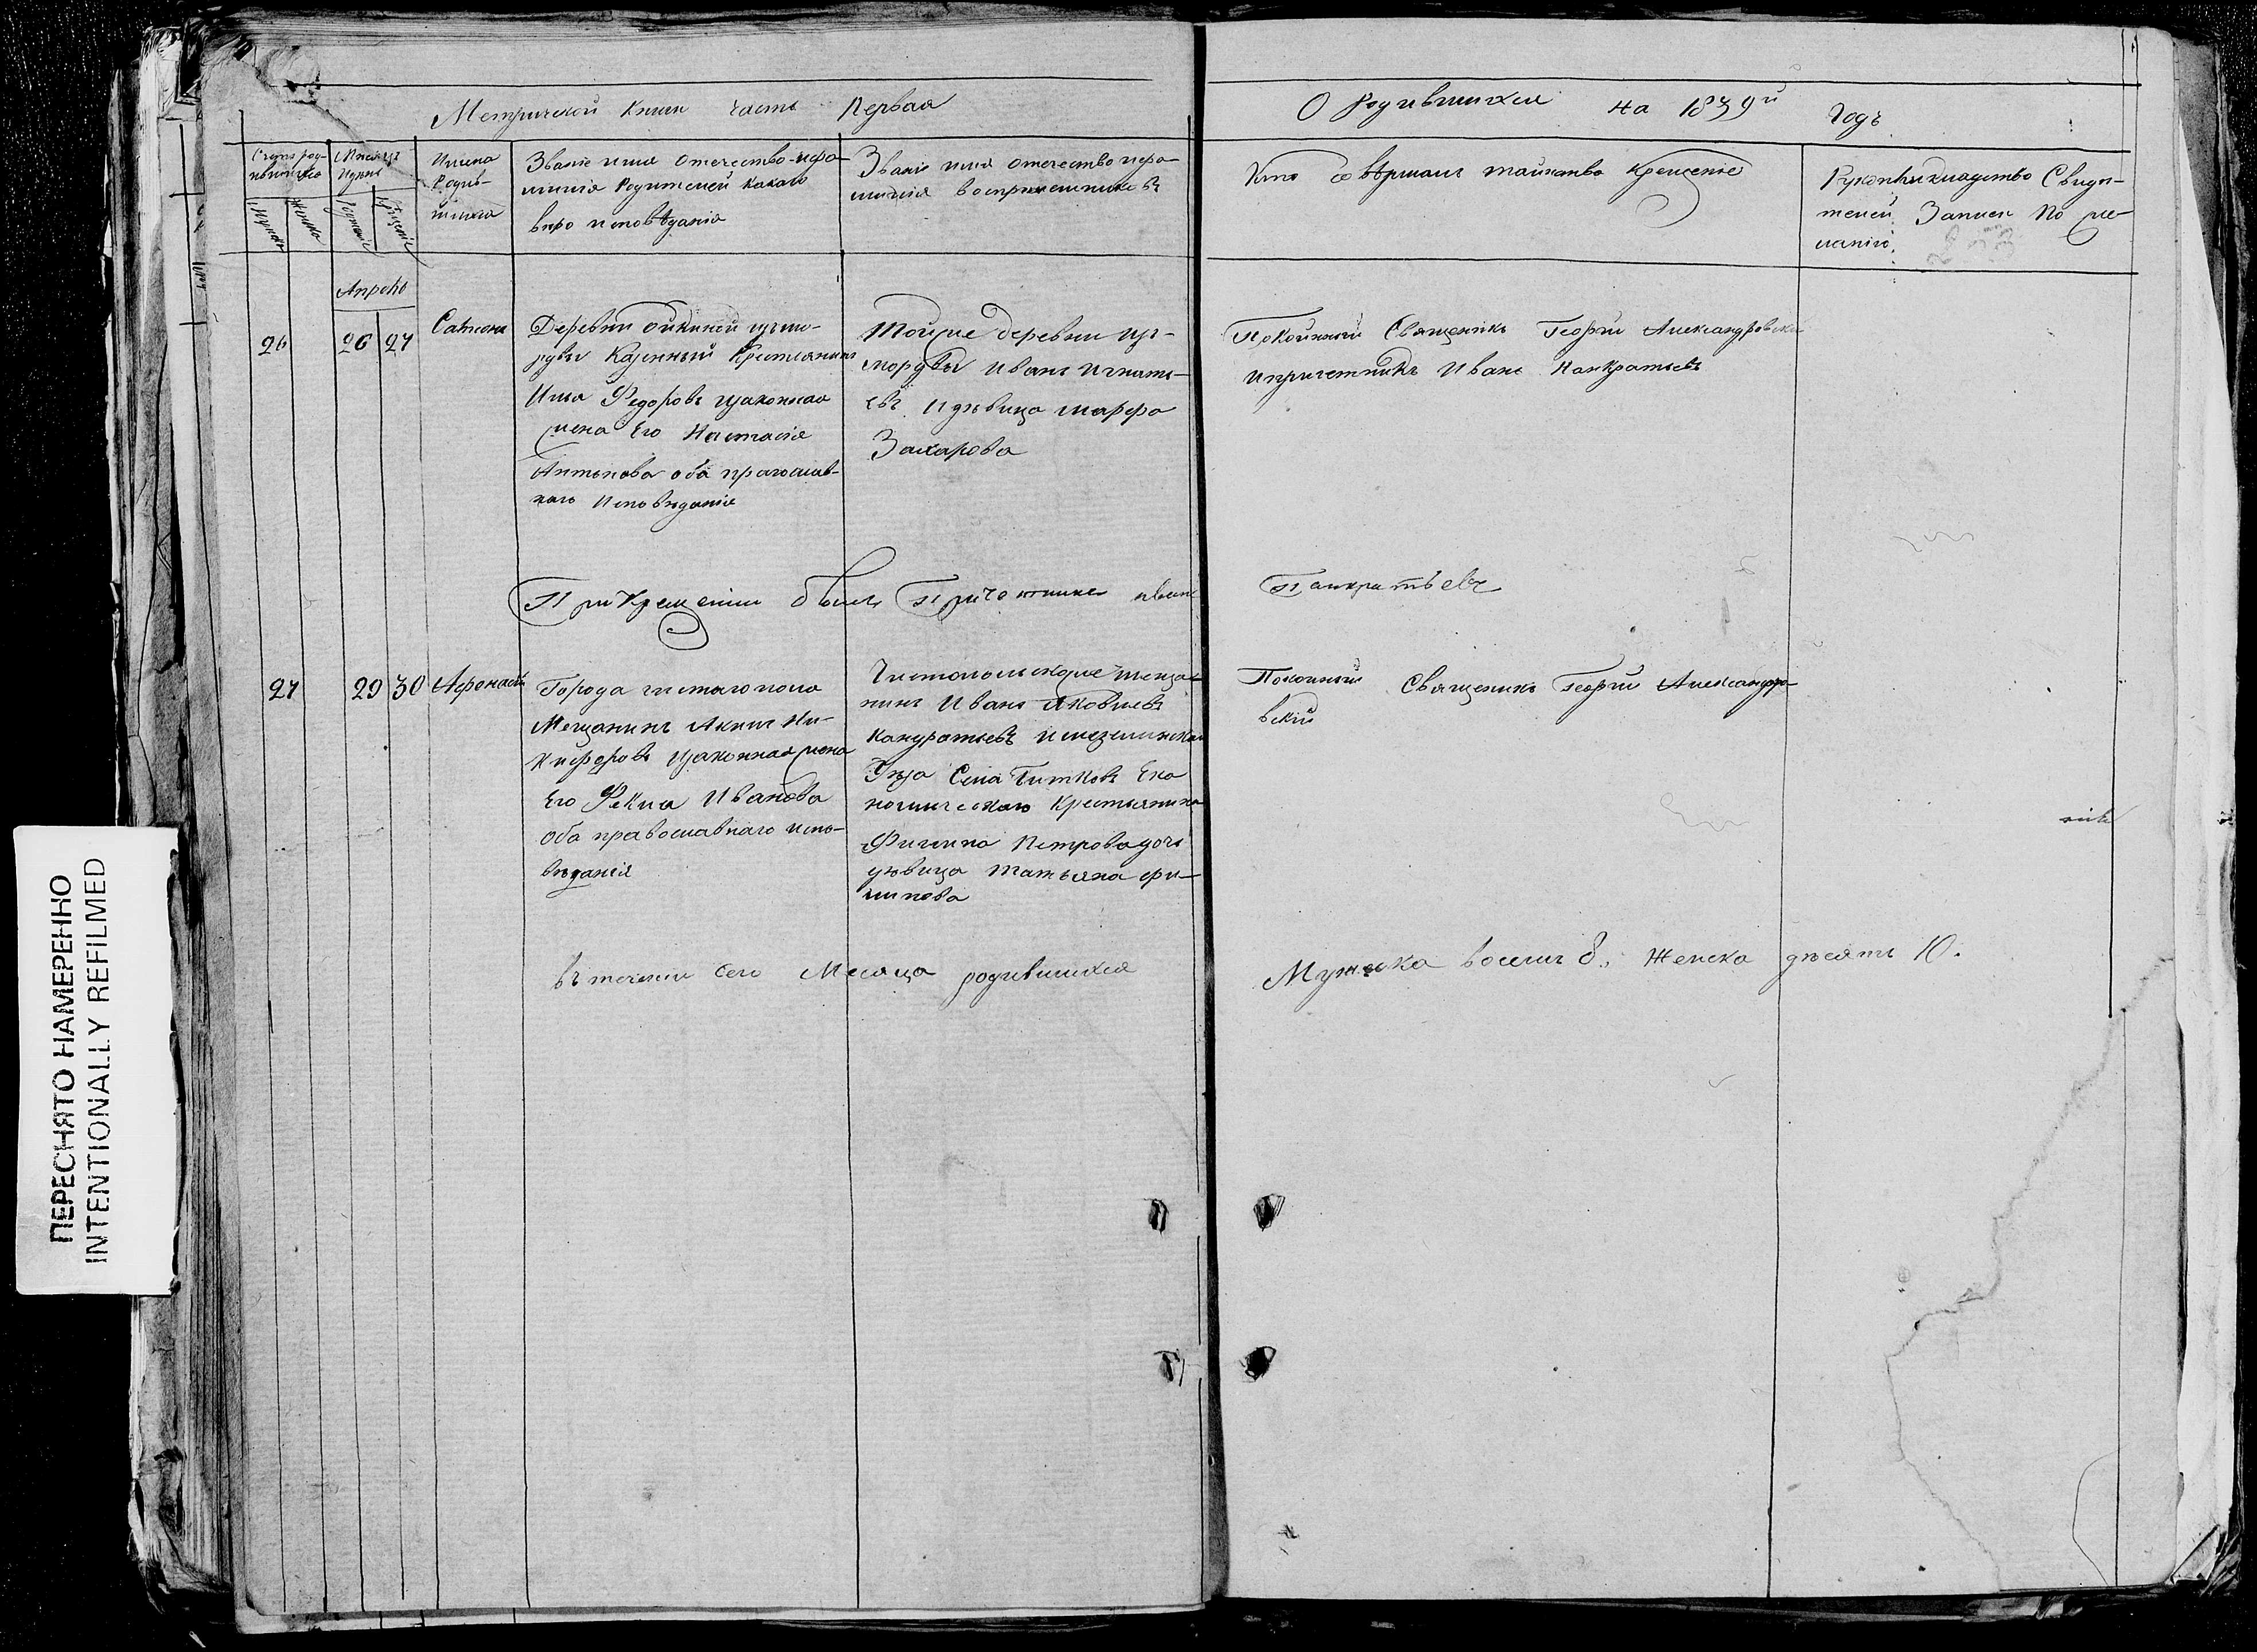 Метрической книги часть первая
О родившихся на 1839й годъ
Имена
Родив-
шихся
Званiе имя отечество и фа-
милiя Родителей какого
Званiе имя отечество и фа-
милiя воспрiемниковъ
Кто совѣршалъ таинство Крещенiе
Рукоприкладство Свидѣ-
телей Записи по же-
ланiю
26
26 27
Деревни
Казенный Крестьянинъ
Илья Федоровъ изаконная
жена Его Настасiя
Антонова оба православ-
наго Исповѣданiе
Тойже деревни
мордвы Иванъ Игнать-
евъ и дѣвица марфа
Захарова
Покойный Священикъ Георгiй Александровскiй
ипричетникъ Иванъ Панкратьевъ
При Крещенiи былъ Причетникъ иванъ
Панкратьевъ
27
29 30 Афонасiй
Города чистополя
Мещанинъ Акимъ Ни-
кифоровъ изаконная жена
Его Фекла Иванова
Оба православнаго испо-
вѣданiя
нинъ Иванъ Яковлевъ
Уѣзда Села Эко
номическаго Крестьянина
Филипа Петрова дочь
дѣвица татьяна фи-
липова
Покойный Священикъ Георгiй Александро-
вскiй
въ теченiи сего Месяца родившихся
Мужска восемь 8, Женска дѣсять 10.
ПЕРЕСНЯТО НАМЕРЕННО
INTENTIONALLY REFILMED